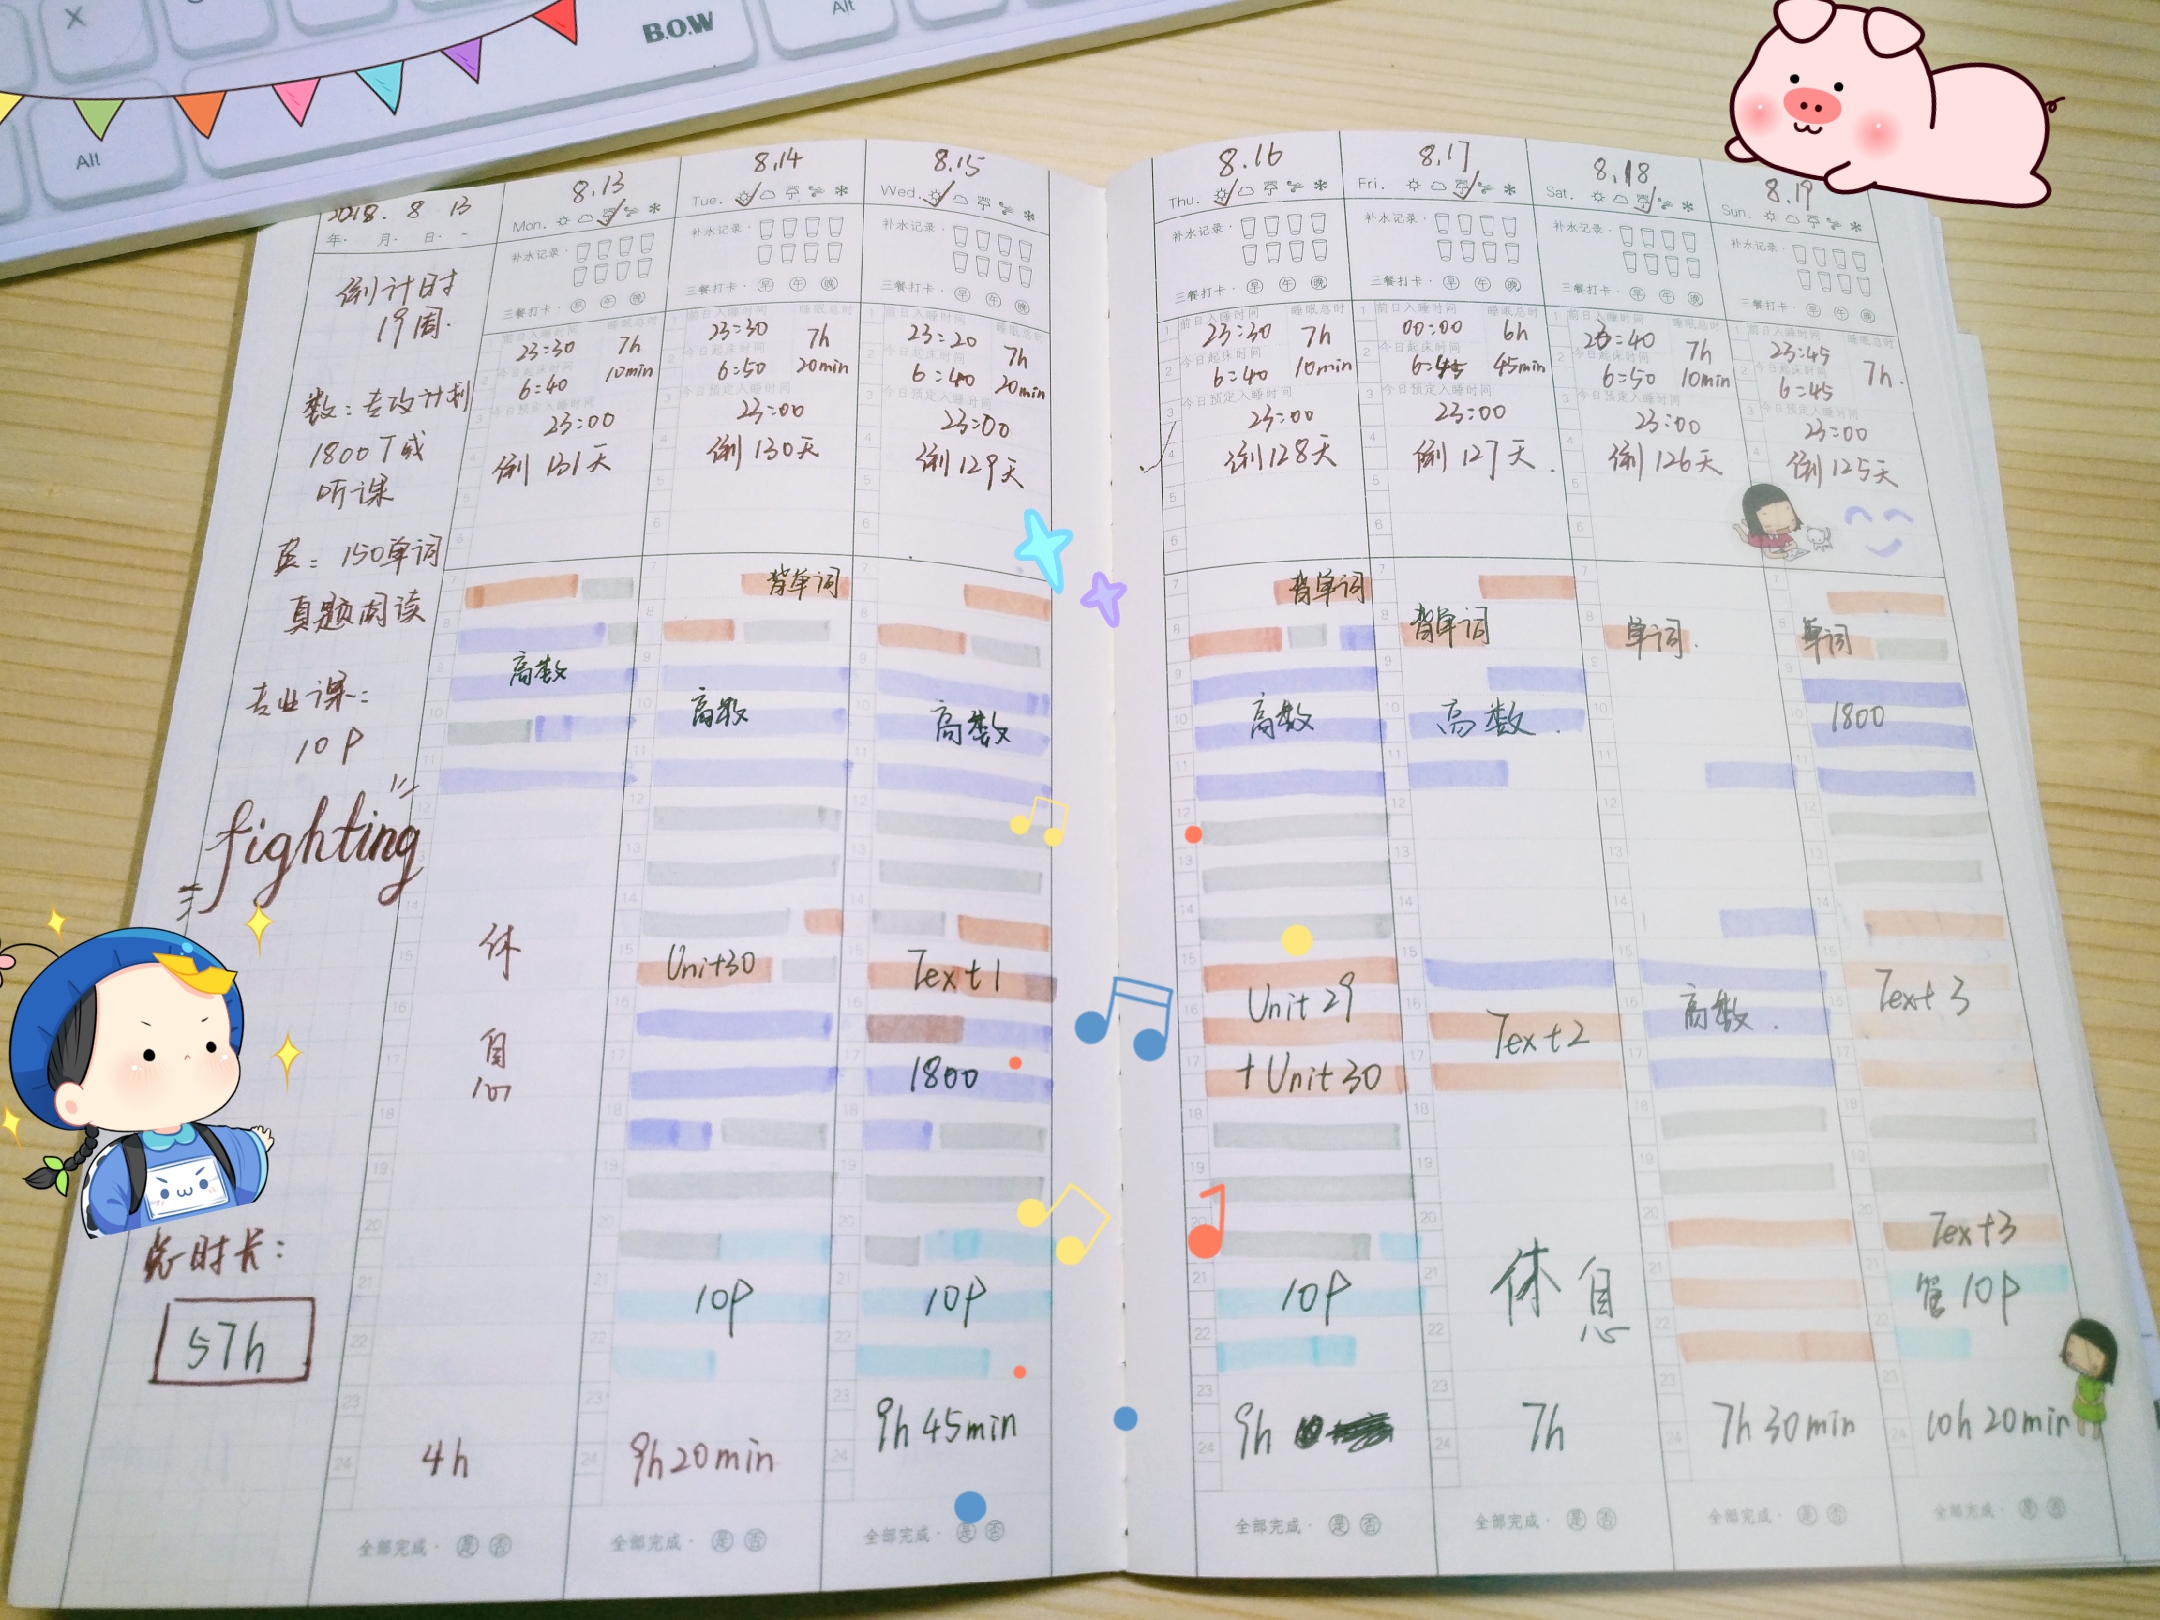 X
Alt
B.O.W
Alt
2018. 8 13
年· 月· 日·
倒计时
19周.
数: 专攻计划
1800T或
听课
英: 150单词
真题阅读
专业课:
10P
fighting
总时长:
57h
8.13
Mon.
补水记录·
三餐打卡· 早 午 晚
前日入睡时间 睡眠总时
23:30 7h
今日起床时间
6:40 10min
今日预定入睡时间
23:00
倒131天
高数
休
息
4h
全部完成· 是 否
8.14
Tue.
补水记录·
三餐打卡· 早 午 晚
前日入睡时间 睡眠总时
23:30 7h
今日起床时间
6:50 20min
今日预定入睡时间
23:00
倒130天
背单词
高数
Unit30
10P
9h20min
全部完成· 是 否
8.15
Wed.
补水记录·
三餐打卡· 早 午 晚
前日入睡时间 睡眠总时
23:20 7h
今日起床时间
6:40 20min
今日预定入睡时间
23:00
倒129天
高数
Text1
1800
10P
9h45min
全部完成· 是 否
8.16
Thu.
补水记录·
三餐打卡· 早 午 晚
前日入睡时间 睡眠总时
23:30 7h
今日起床时间
6:40 10min
今日预定入睡时间
23:00
倒128天
背单词
高数
Unit 29
+Unit30
10P
9h
全部完成· 是 否
8.17
Fri.
补水记录·
三餐打卡· 早 午 晚
前日入睡时间 睡眠总时
00:00 6h
今日起床时间
6:45 45min
今日预定入睡时间
23:00
倒127天.
背单词
高数.
Text2
休息
7h
全部完成· 是 否
8.18
Sat.
补水记录·
三餐打卡· 早 午 晚
前日入睡时间 睡眠总时
23:40 7h
今日起床时间
6:50 10min
今日预定入睡时间
23:00
倒126天
单词.
高数.
7h30min
全部完成· 是 否
8.19
Sun.
补水记录·
三餐打卡· 早 午 晚
前日入睡时间 睡眠总时
23:45
今日起床时间
6:45 7h.
今日预定入睡时间
23:00
倒125天
单词
1800
Text 3
Text3
管10P
10h20min
全部完成· 是 否